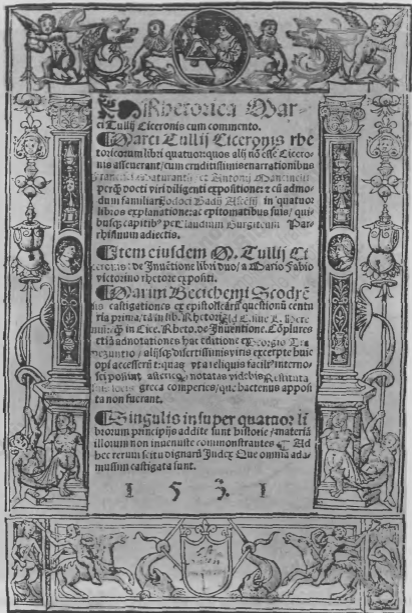 Rhetorica Mar
ci Tullij Ciceronis cum commento.
Marci Tullij Ciceronis rhe
toricorum libri quatuor: quos alij nō esse Cicero-
nis asseuerant/cum eruditissimis enarrationibus
Francisci Maturantij et Antonij Mancinelli
perq̄ docti viri diligenti expositione: e cū admo-
dum familiari Jodoci Badij Ascēsij in quatuor
libros explanatione: ac epitomatibus suis/ qui-
busq; capitib⁹ per Claudium Burgiteum Par-
rhisinum adiectis.
Item eiusdem M. Tullij Ci
ceronis de Inuētione libri duo/ a Mario Fabio
victorino rhetore expositi.
Marini Becichemi Scodrē
sis castigationes ex epistolicarū questionū centu
ria prima/ in lib. Rhetori.
in Cice. Rheto. de Inuentione. Cōplures
etiā adnotationes hac editione ex Georgio Tra
pezuntio/ alijsq; disertissimis viris excerpte huic
operi accesserūt: quas vt a reliquis facile interno-
sci possint notatas videbis
greca comperies/ que hactenus apposi
ta non fuerant.
Singulis insuper quatuor li
brorum principijs addite sunt historie/ materiā
illorum non inuenuste commonstrantes Ad
hec rerum scitu dignarū Index Que omnia ada-
mussim castigata sunt.
1531